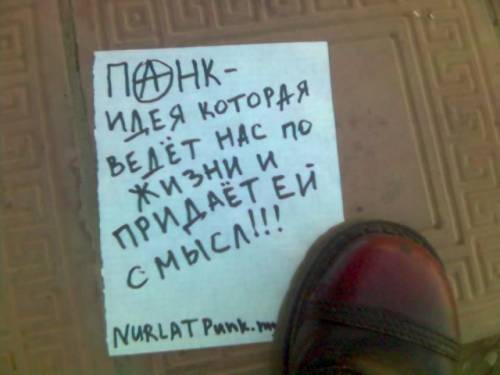 ПАНК-
ИДЕЯ КОТОРАЯ
ВЕДЁТ НАС ПО
ЖИЗНИ И
ПРИДАЁТ ЕЙ
СМЫСЛ!!!
NURLATPunk.